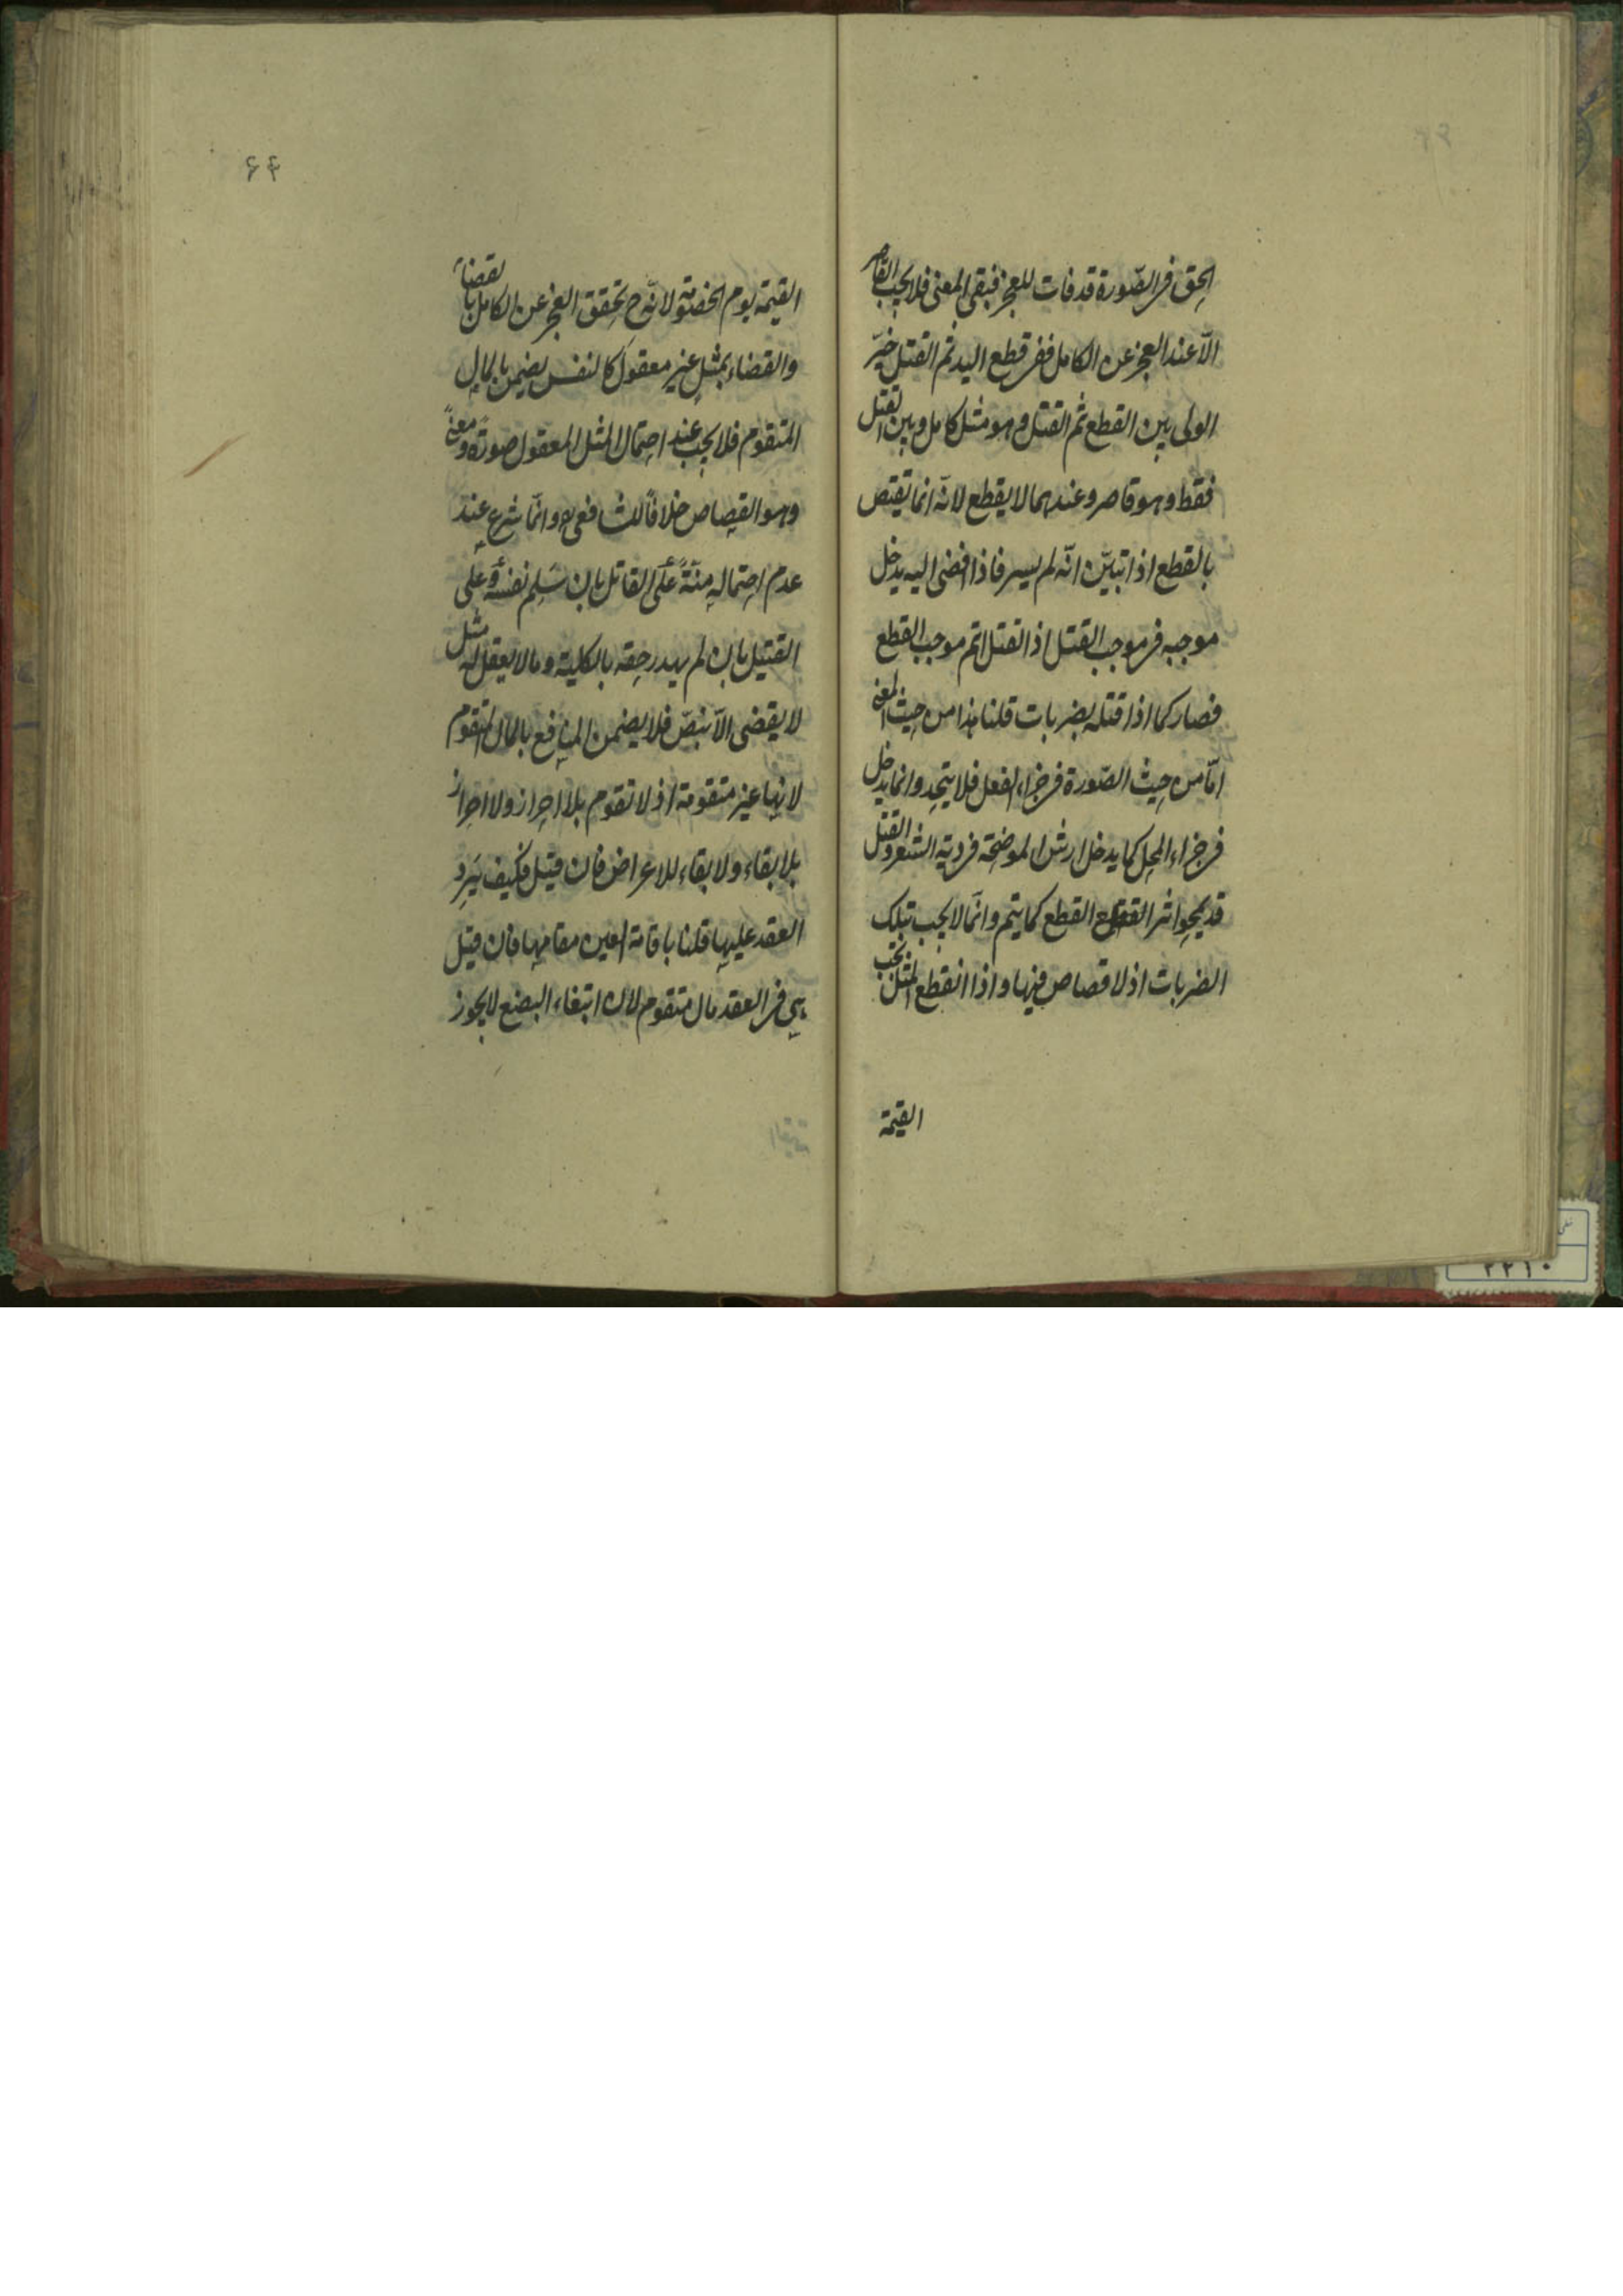 الحق في الصّورة قد فات للعجز فبقي المعنى فلا يجب القاصر
الّا عند العجز عن الكامل ففي قطع اليد ثم القتل خيّر
الولي بين القطع ثم القتل وهو مثل كامل وبين القتل
فقط وهو قاصر وعندهما لا يقطع لانّه انما يقتص
بالقطع اذا تبيّن انّه لم يسر فاذا افضى اليه يدخل
موجبه في موجب القتل اذ القتل اتم موجب القطع
فصار كما اذا قتله بضربات قلنا هذا من حيث المعنى
امّا من حيث الصّورة في جزاء الفعل فلا يتحد وانما يدخل
في جزاء المحل كما يدخل ارش الموضحة في دية الشعر والقتل
قد يمحو اثر القطع كما يتم وانّما لا يجب تبلك
الضربات اذ لا قصاص فيها واذا انقطع المثل تجب
القيمة
۶۴
القيمة يوم الخصومة لانّه ح تحقق العجز عن الكامل بالقضاء
والقضاء بمثل غير معقول كالنفس يضمن بالمال
المتقوم فلا يجب عند احتمال المثل المعقول صورةً ومعنىً
وهو القصاص خلافًا للشافعي ره وانّما شرع عند
عدم احتماله منّةً على القاتل بان سَلِم نفسه وعلى
القتيل بان لم يهدر حقه بالكلية وما لا يعقل له مثل
لا يقضى الّا بنصّ فلا يضمن المنافع بالمال المتقوم
لانها غير متقومة اذ لا تقوم بلا احراز ولا احراز
بلا بقاء ولا بقاء للاعراض فان قيل فكيف يَرِد
العقد عليها قلنا باقامة العين مقامها فان قيل
هي في العقد مال متقوم لان ابتغاء البضع لا يجوز
۲۲۱۰